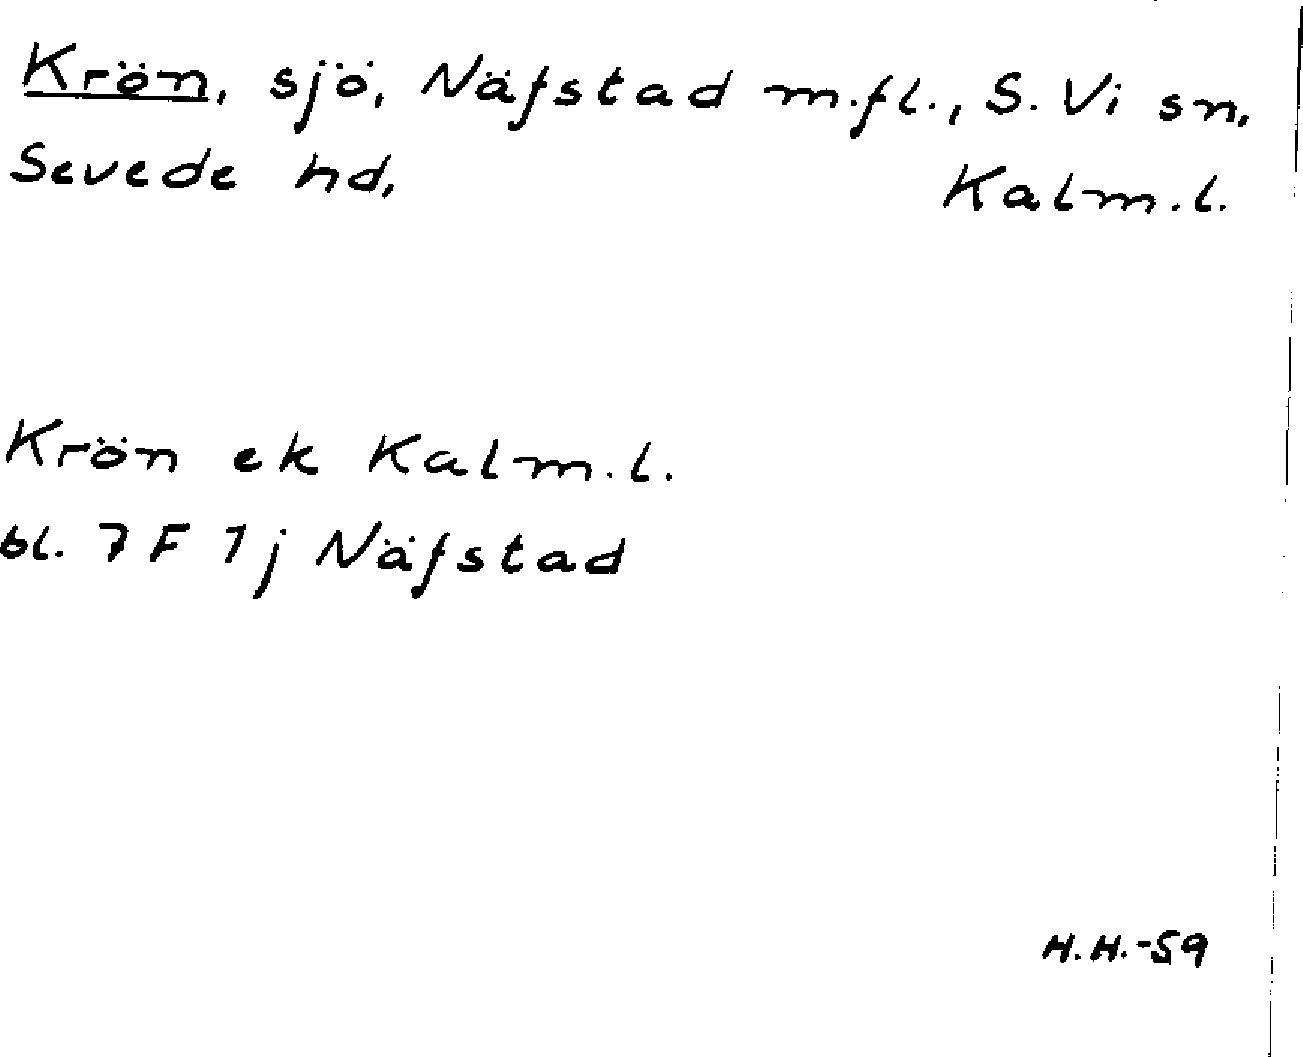 Krön, sjö, Näfstad m.fl., S. Vi sn,
Sevede hd, Kalm.l.
Krön ek Kalm.l.
bl. 7 F 1j Näfstad
H.H.-59